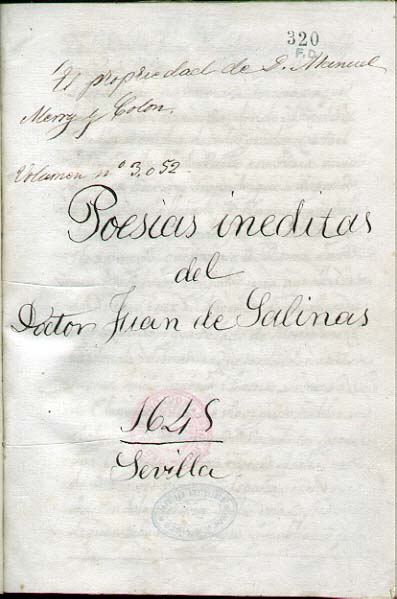 320
F.D.
Es propriedad de D. Manuel
Merry y Colon.
Volumen nº 3,052.
Poesías ineditas
del
Doctor Juan de Salinas
1645
Sevilla